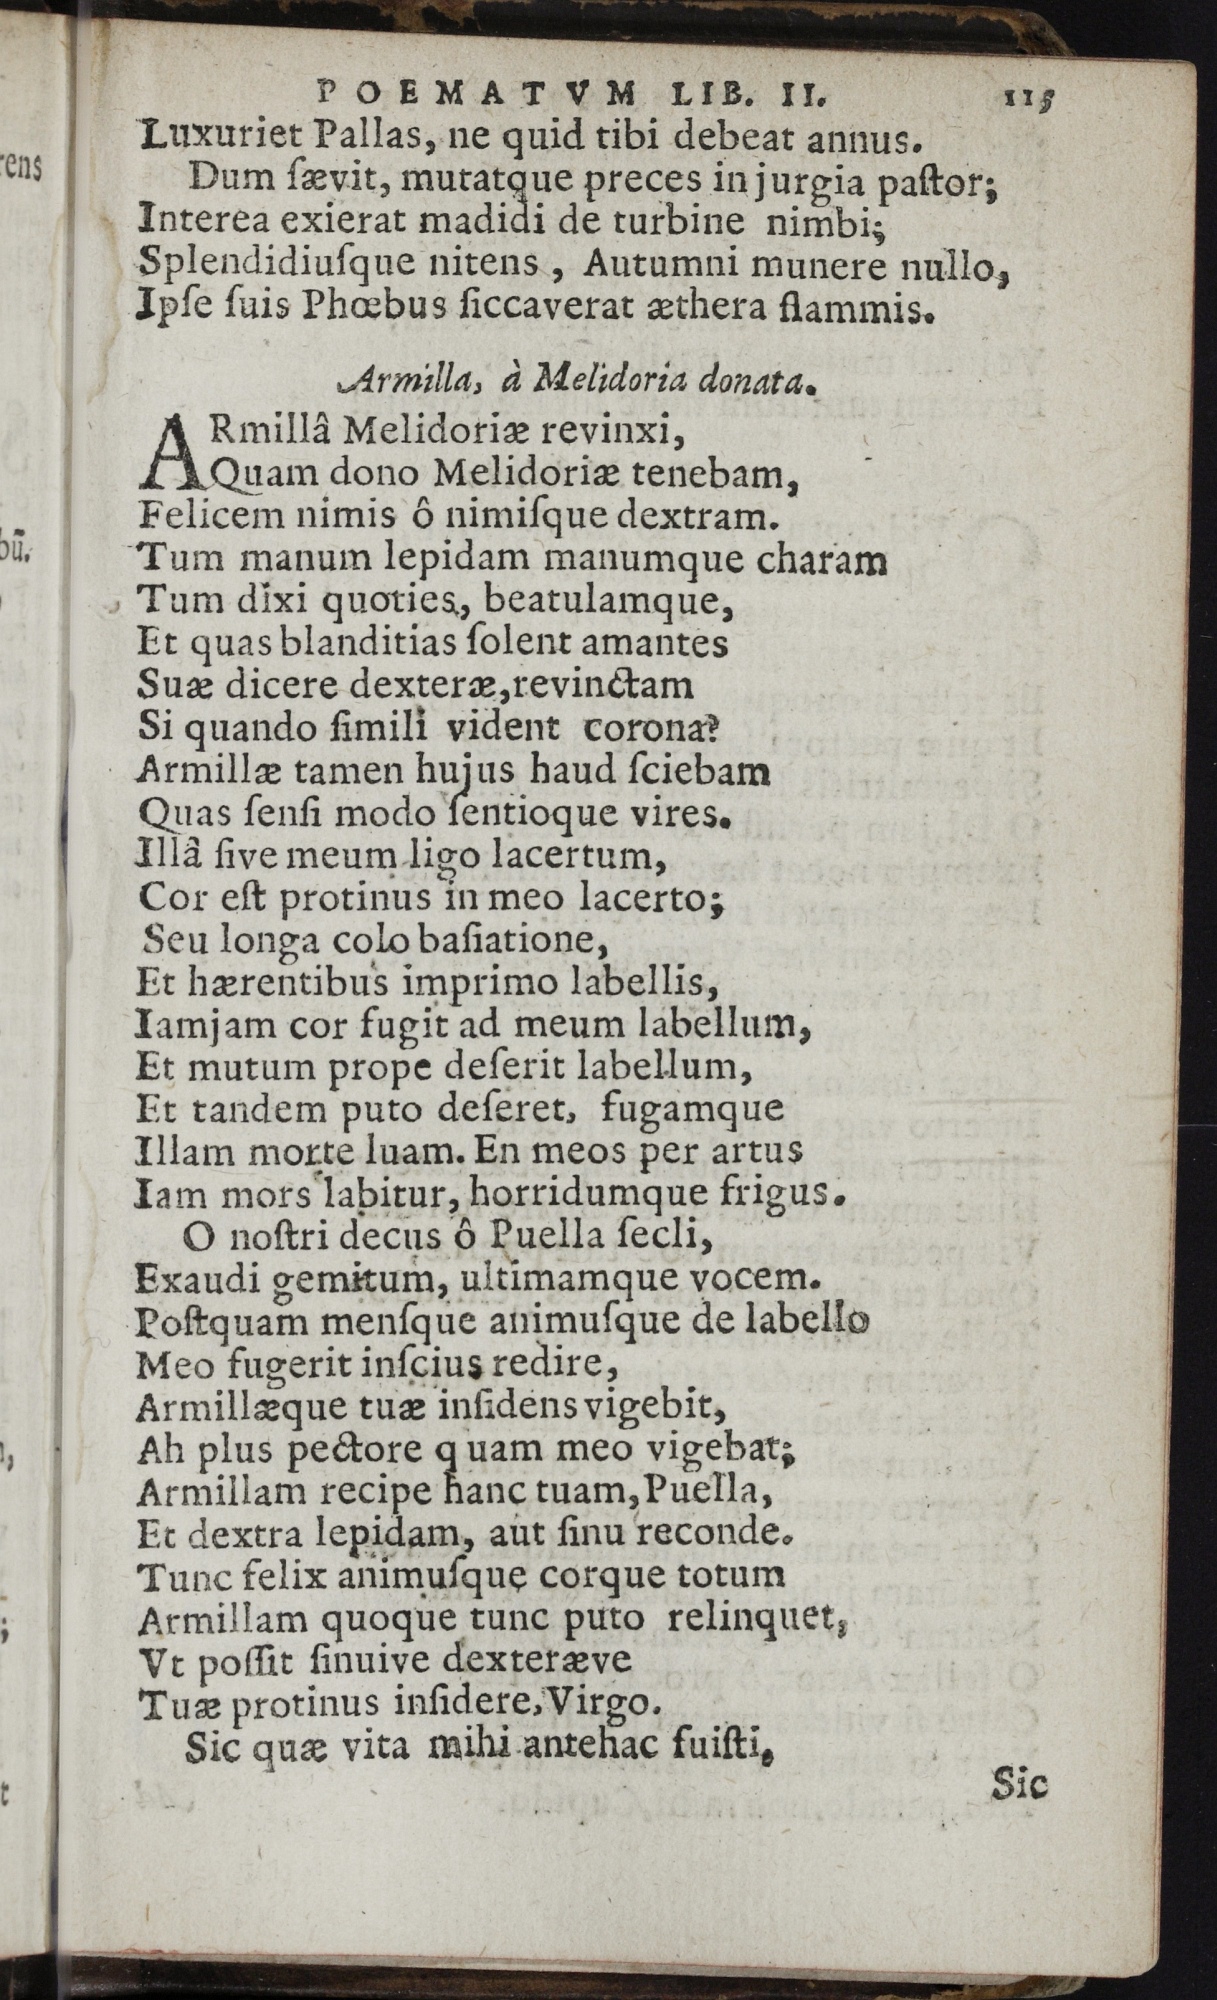 POEMATVM LIB. II. 115
Luxuriet Pallas, ne quid tibi debeat annus.
Dum ſævit, mutatque preces in jurgia paſtor;
Interea exierat madidi de turbine nimbi;
Splendidiuſque nitens, Autumni munere nullo,
Ipſe ſuis Phœbus ſiccaverat æthera flammis.
Armilla, à Melidoria donata.
ARmillâ Melidoriæ revinxi,
Quam dono Melidoriæ tenebam,
Felicem nimis ô nimiſque dextram.
Tum manum lepidam manumque charam
Tum dixi quoties, beatulamque,
Et quas blanditias ſolent amantes
Suæ dicere dexteræ, revinctam
Si quando ſimili vident corona?
Armillæ tamen hujus haud ſciebam
Quas ſenſi modo ſentioque vires.
Illâ ſive meum ligo lacertum,
Cor eſt protinus in meo lacerto;
Seu longa colo baſiatione,
Et hærentibus imprimo labellis,
Iamjam cor fugit ad meum labellum,
Et mutum prope deſerit labellum,
Et tandem puto deſeret, fugamque
Illam morte luam. En meos per artus
Iam mors labitur, horridumque frigus.
O noſtri decus ô Puella ſecli,
Exaudi gemitum, ultimamque vocem.
Poſtquam menſque animuſque de labello
Meo fugerit inſcius redire,
Armillæque tuæ inſidens vigebit,
Ah plus pectore quam meo vigebat;
Armillam recipe hanc tuam, Puella,
Et dextra lepidam, aut ſinu reconde.
Tunc felix animuſque corque totum
Armillam quoque tunc puto relinquet,
Vt poſſit ſinuive dexteræve
Tuæ protinus inſidere, Virgo.
Sic quæ vita mihi antehac fuiſti,
Sic